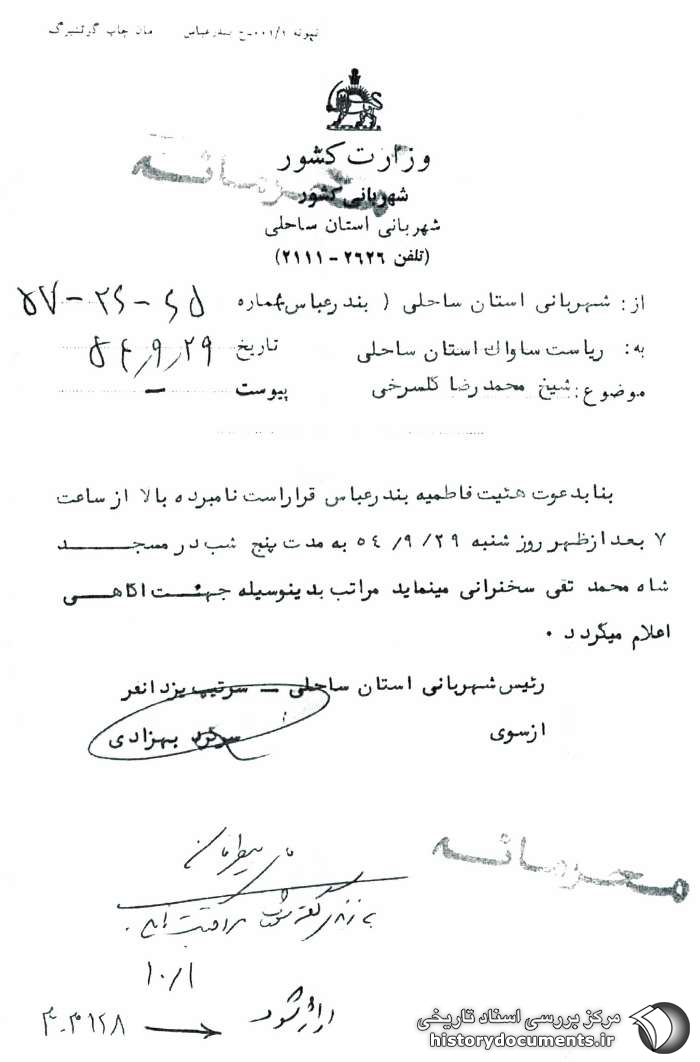 نمونه ۰۰۱/۱-ج بندرعباس مان چاپ گوتنبرگ
وزارت کشور
محرمانه
شهربانی کشور
شهربانی استان ساحلی
(تلفن ۲۶۲۶ - ۲۱۱۱)
از: شهربانی استان ساحلی ( بندرعباس) شماره ۴۵-۲۴-۵۷
به: ریاست ساواک استان ساحلی تاریخ ۵۴/۹/۲۹
موضوع: شیخ محمدرضا گلسرخی پیوست -
بنابدعوت هئیت فاطمیه بندرعباس قراراست نامبرده بالا از ساعت
۷ بعدازظهر روز شنبه ۵۴/۹/۲۹ به مدت پنج شب در مسجد
شاه محمد تقی سخنرانی مینماید مراتب بدینوسیله جهت اگاهی
اعلام میگردد .
رئیس شهربانی استان ساحلی - سرتیپ یزدانفر
ازسوی سرگرد بهزادی
محرمانه
۱۰/۱
شود
۳۰۳۱۲۸
مرکز بررسی اسناد تاریخی
historydocuments.ir